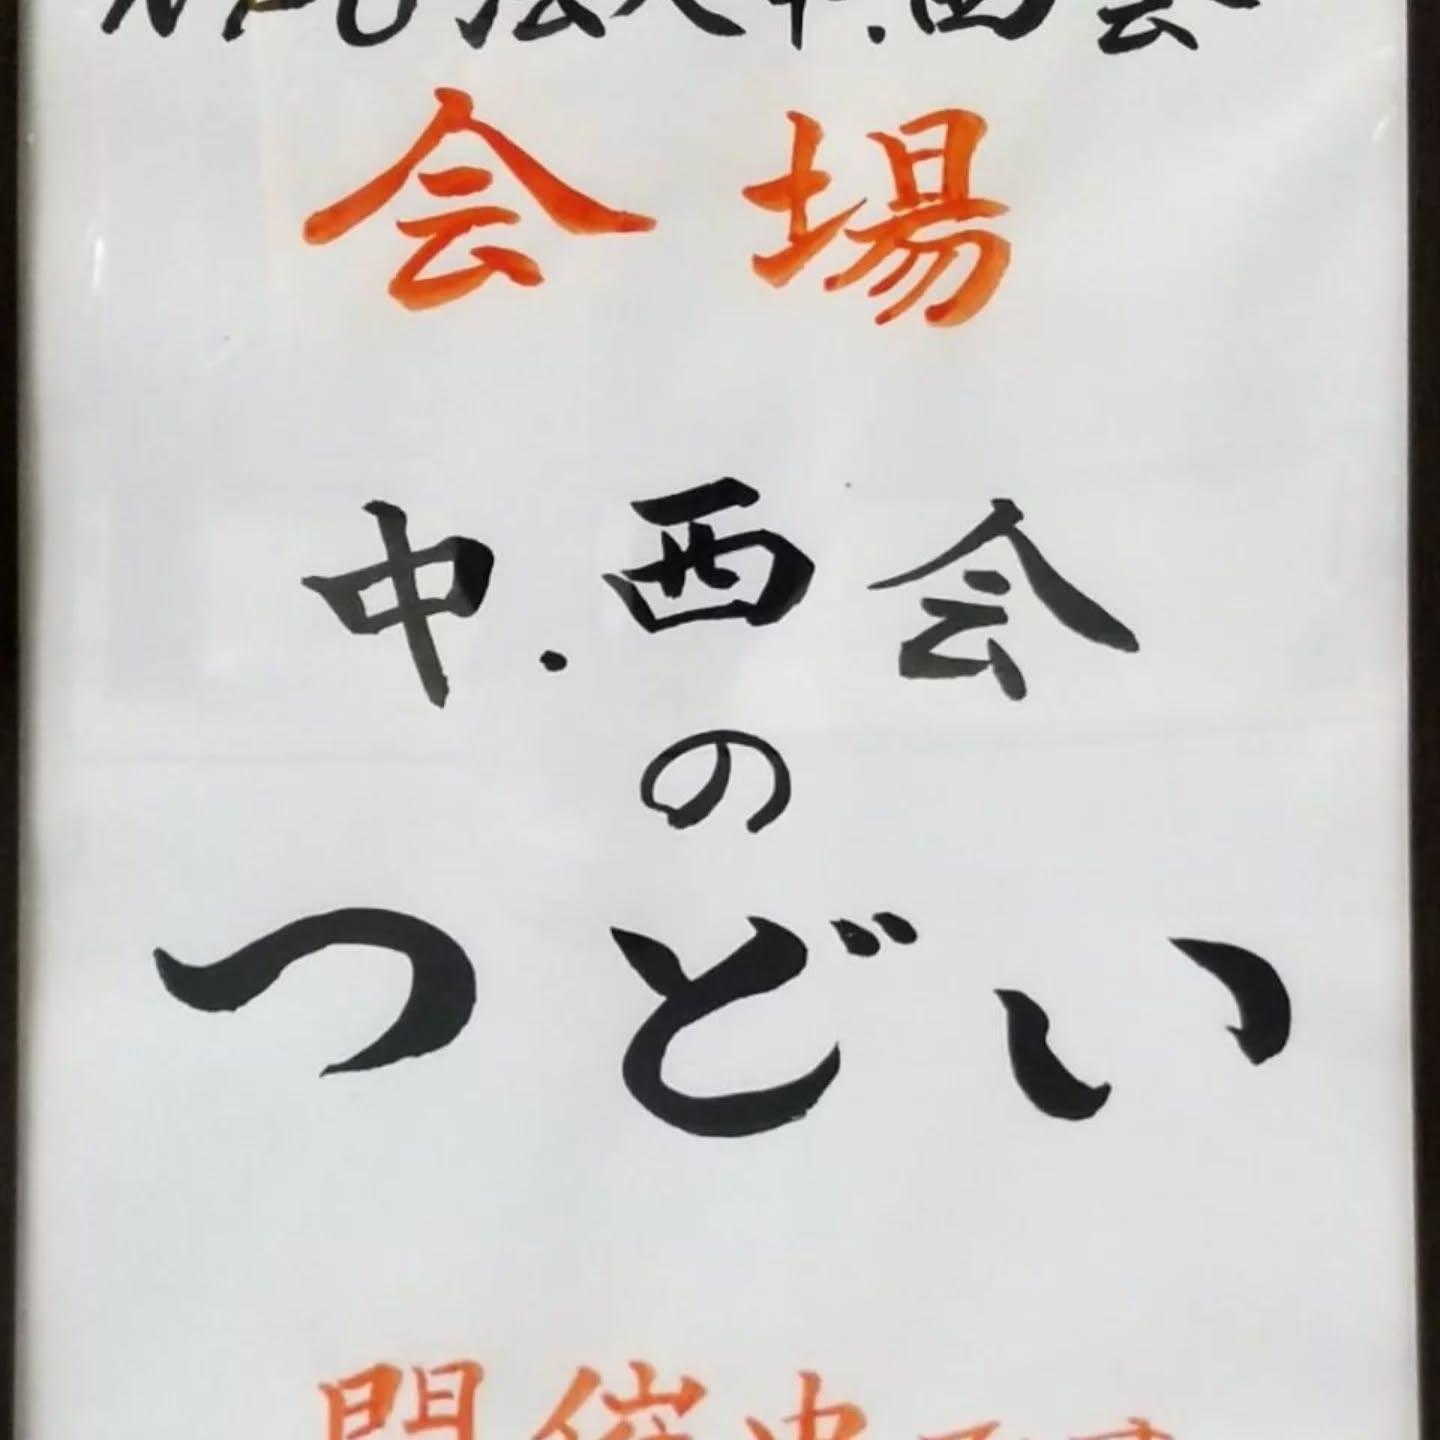 NPO法人中.西会
会場
中.西会
の
つどい
開催中